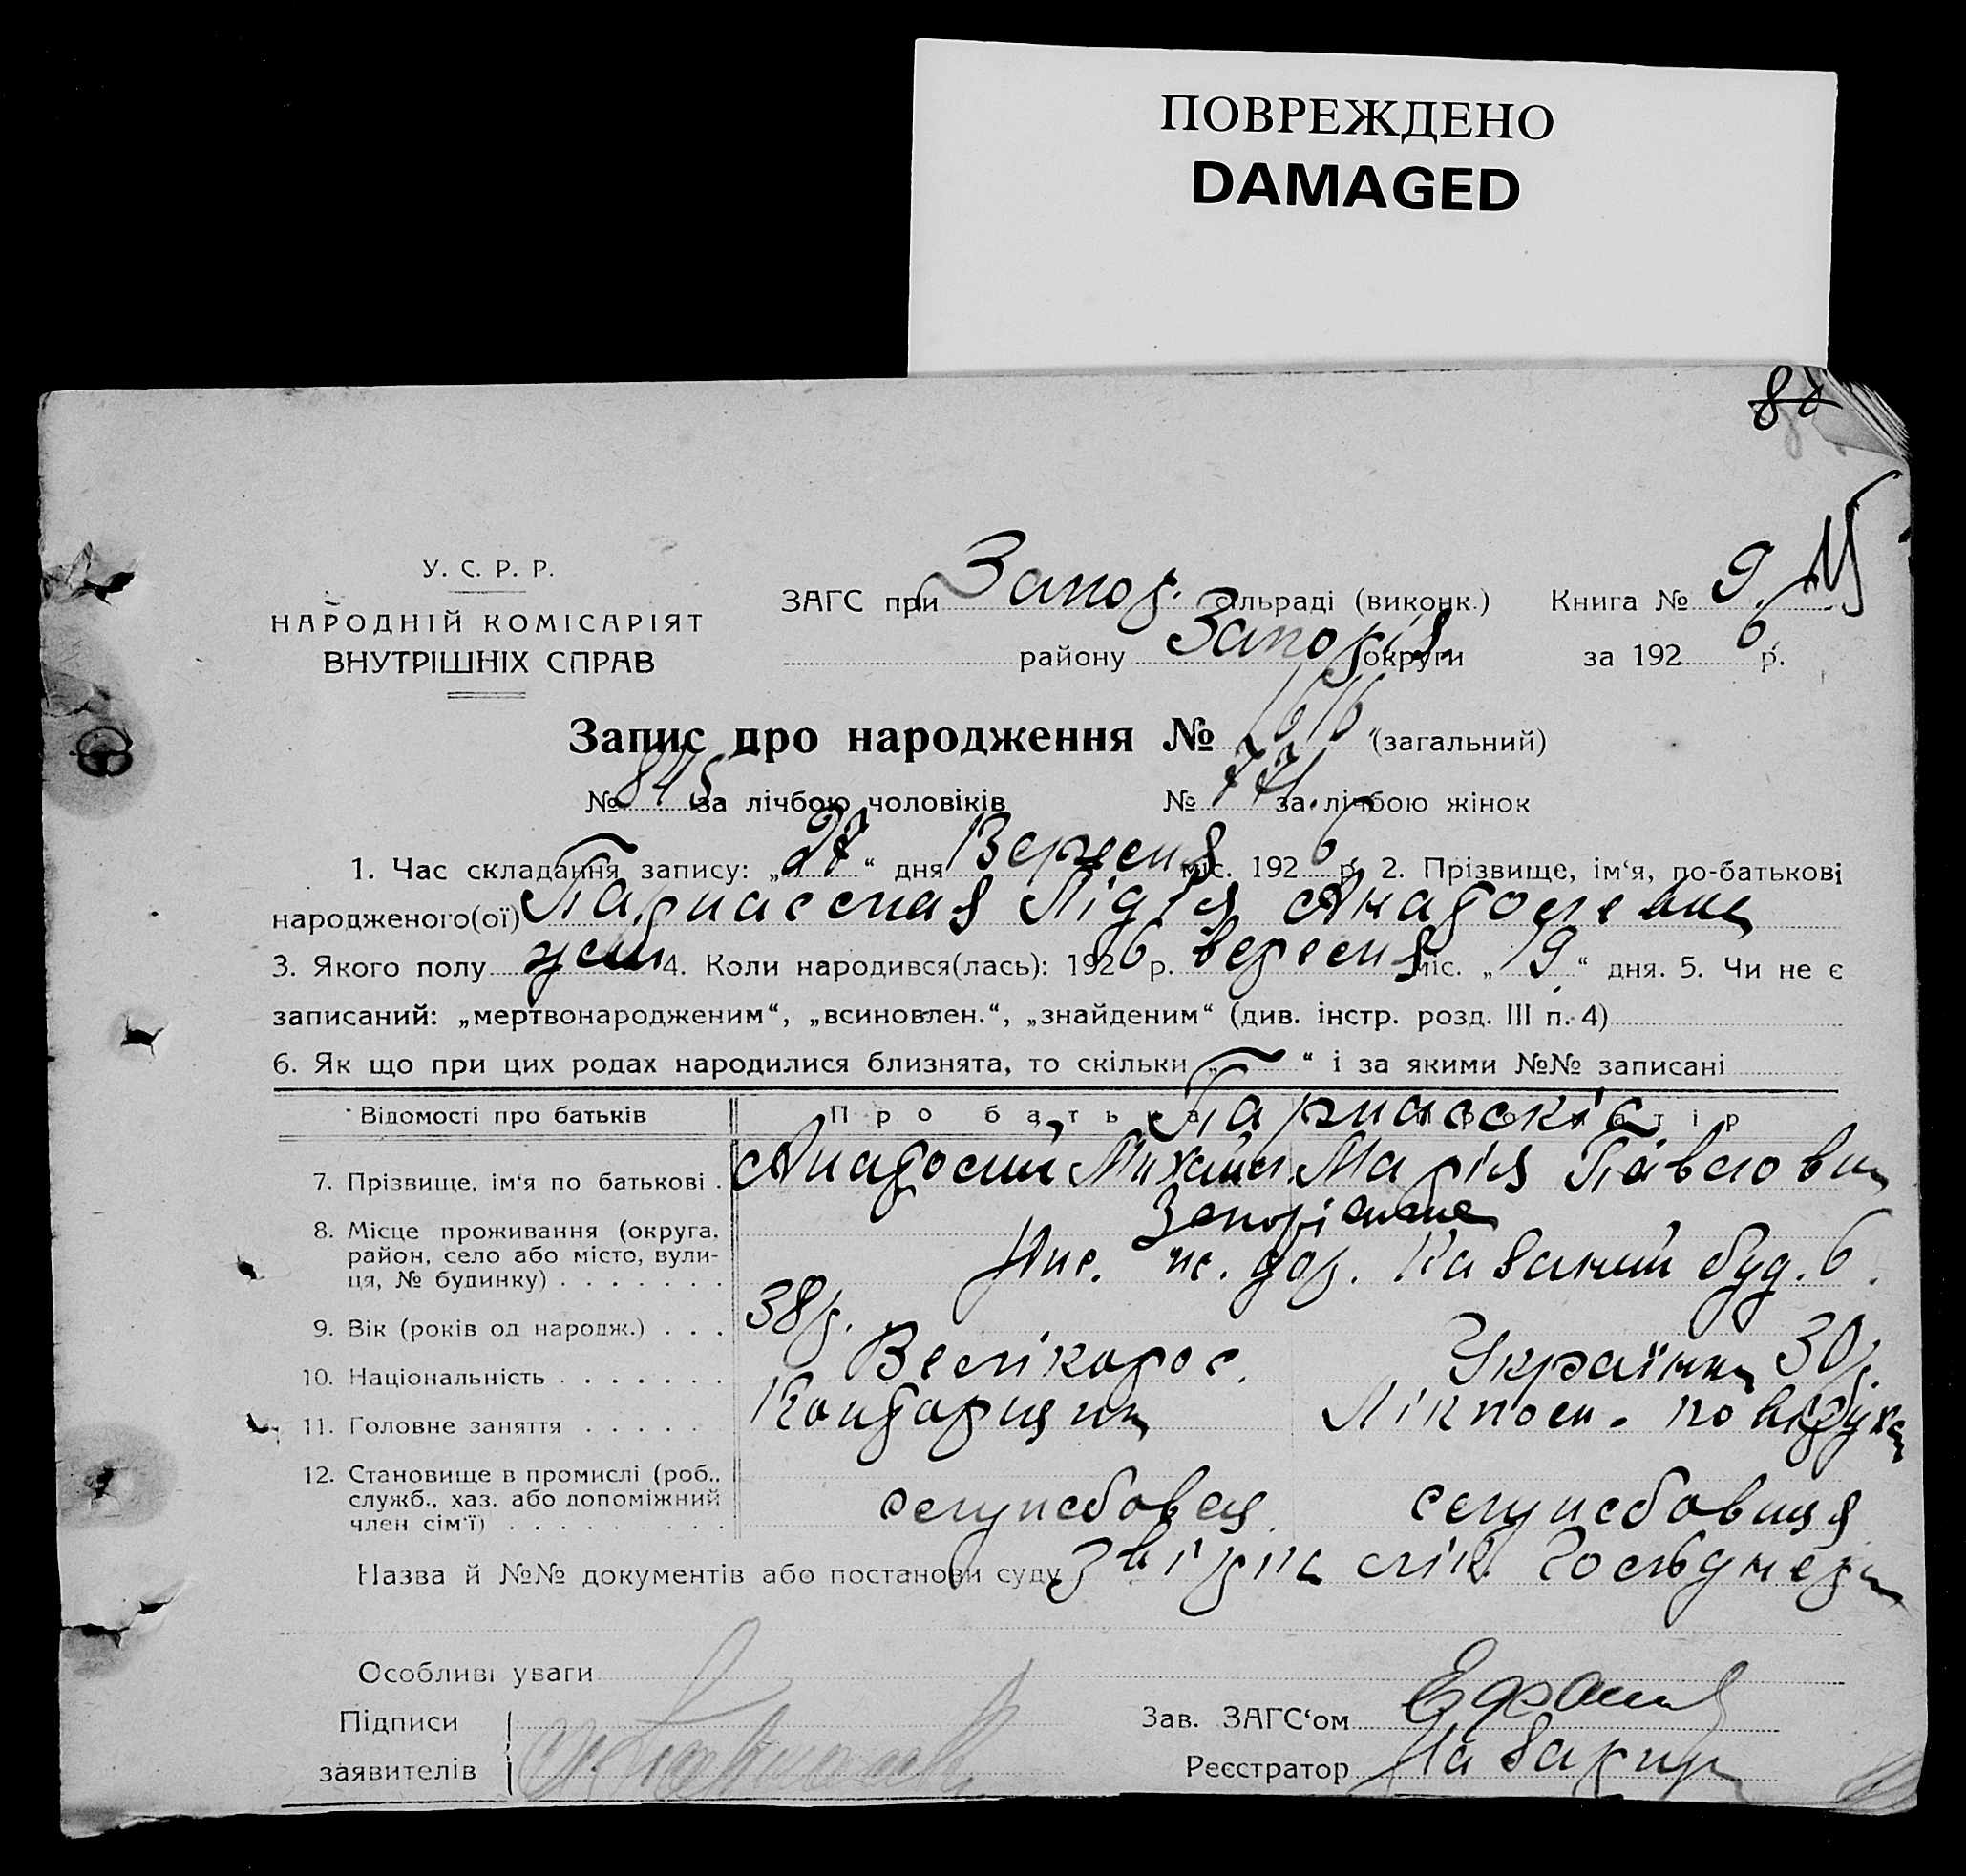 ПОВРЕЖДЕНО
DAMAGED
88
У. С. Р. Р.
НАРОДНІЙ КОМІСАРІЯТ
ВНУТРІШНІХ СПРАВ
ЗАГС при Запор. сільраді (виконк.) Книга № 9
району Запоріз. округи за 1926 р.
Запис про народження № 1616 (загальний)
№ 845 за лічбою чоловіків № 771 за лічбою жінок
1. Час складання запису: „27“ дня Вересня міс. 1926 р. 2. Прізвище, ім‘я, по-батькові
народженого(ої) Парнасская Лідія Анатольевна
3. Якого полу жін 4. Коли народився(лась): 1926 р. вересня міс. „19“ дня. 5. Чи не є
записаний: „мертвонародженим“, „всиновлен.“, „знайденим“ (див. інстр. розд. III п. 4)
6. Як що при цих родах народилися близнята, то скільки „—“ і за якими №№ записані
Відомості про батьків Про батька Про матір
Парнасскіе
7. Прізвище, ім‘я по батькові . Анатолий Михайл. Марія Павловна
8. Місце проживання (округа, район, село або місто, вулиця, № будинку) Запоріжже
буд. 6.
9. Вік (років од народж.) . . . 38 р. 30 р.
10. Національність . . . . . . . Велікорос. Українка
11. Головне заняття . . . . . . Конторщик
12. Становище в промислі (роб., служб., хаз. або допоміжний член сім‘ї) . . . . . . . . . службовец службовиця
Назва й №№ документів або постанови суду Звірка лік. Гольднера
Особливі уваги
Підписи
заявителів
Зав. ЗАГС‘ом
Реєстратор